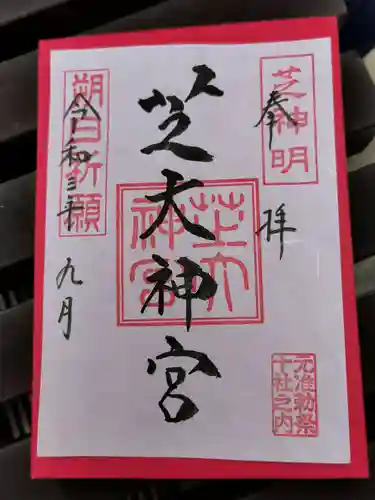 奉拝
芝神明
芝大神宮
芝大神宮
元准勅祭
十社之内
朔日祈願
令和三年
九月